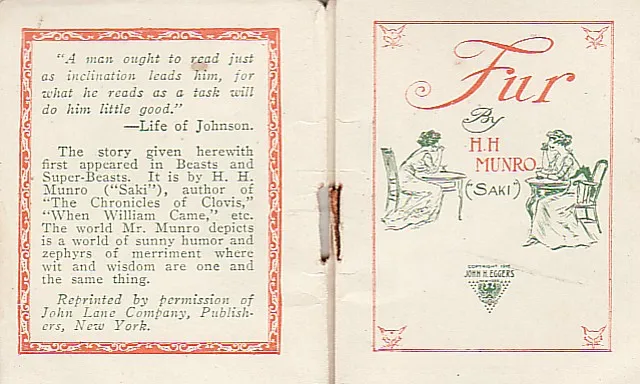 "A man ought to read just
as inclination leads him, for
what he reads as a task will
do him little good."
—Life of Johnson.
The story given herewith
first appeared in Beasts and
Super-Beasts. It is by H. H.
Munro ("Saki"), author of
"The Chronicles of Clovis,"
"When William Came," etc.
The world Mr. Munro depicts
is a world of sunny humor and
zephyrs of merriment where
wit and wisdom are one and
the same thing.
Reprinted by permission of
John Lane Company, Publish-
ers, New York.
Fur
By
H.H
MUNRO
("SAKI")
COPYRIGHT
JOHN H. EGGERS